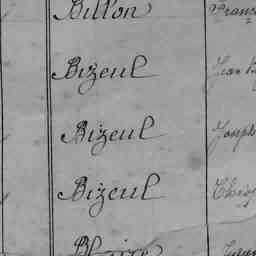 Billon Franç
Bizeul Jean B
Bizeul Joseph
Bizeul
Blaize